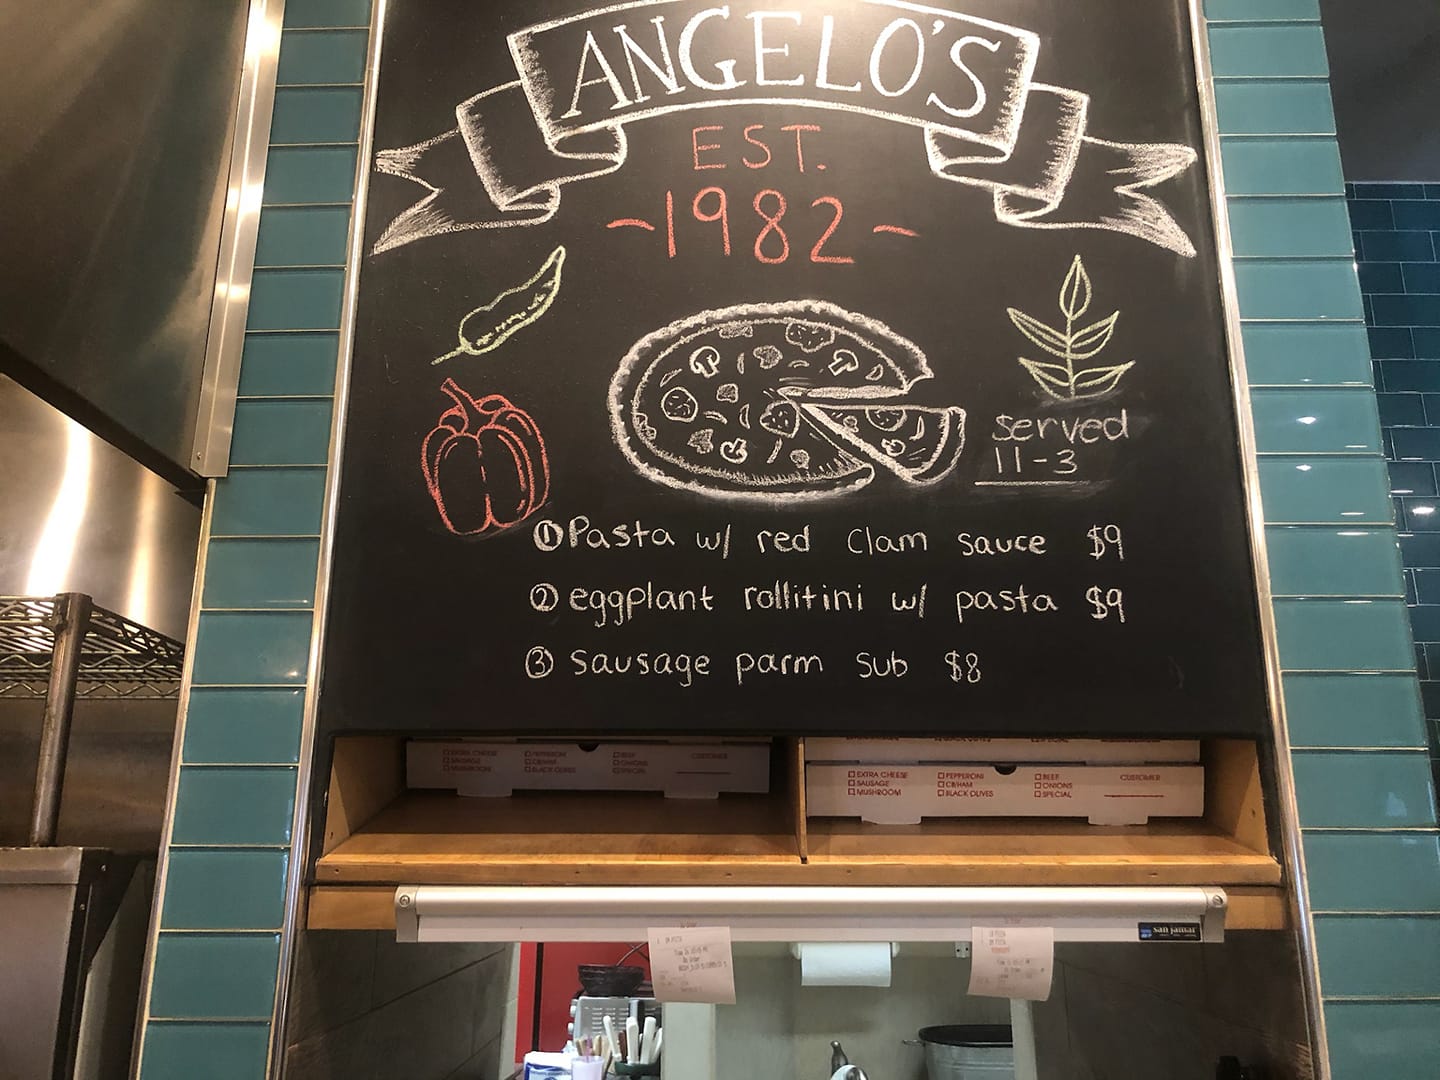 ANGELO'S
EST.
~1982~
served
11-3
① Pasta w/ red clam sauce $9
② eggplant rollitini w/ pasta $9
③ sausage parm sub $8
EXTRA CHEESE PEPPERONI BEEF CUSTOMER
SAUSAGE CB/HAM ONIONS
MUSHROOM BLACK OLIVES SPECIAL
EXTRA CHEESE PEPPERONI BEEF CUSTOMER
SAUSAGE CB/HAM ONIONS
MUSHROOM BLACK OLIVES SPECIAL
san jamar